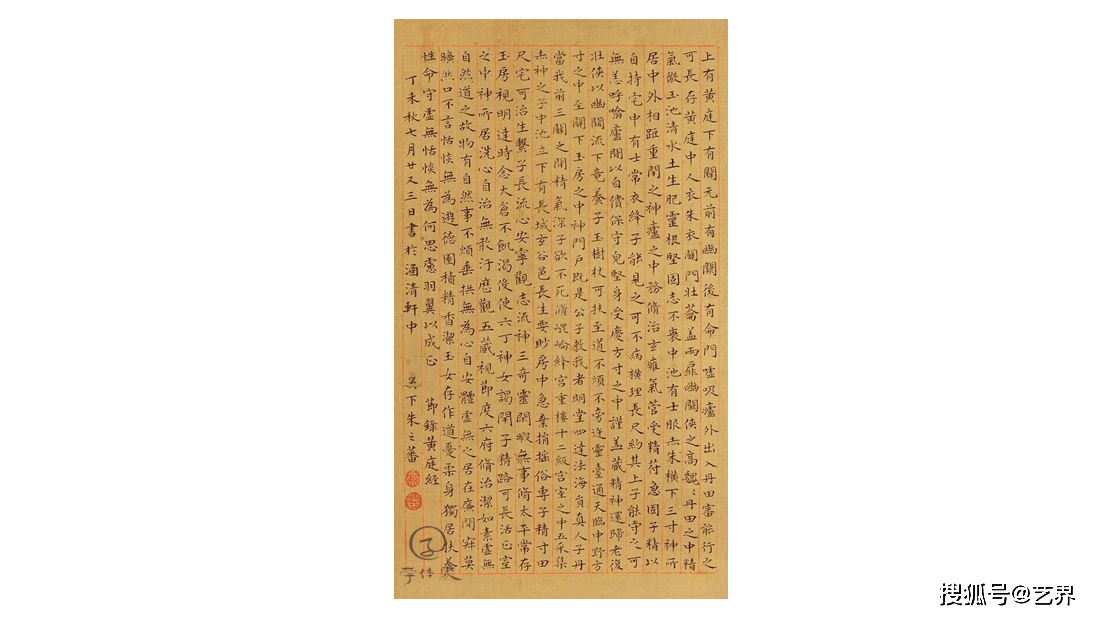 上有黄庭下有關元前有幽關後有命門噓吸廬外出入丹田審能行之
可長存黄庭中人衣朱衣關門壯蘥盖兩扉幽關俠之高魏〻丹田之中精
氣微玉池清水上生肥靈根堅固志不衰中池有士服赤朱横下三寸神所
居中外相距重閇之神廬之中務脩治玄雍氣管受精符急固子精以
自持宅中有士常衣絳子能見之可不病横理長尺約其上子能守之可
無恙呼噏廬間以自償保守皃堅身受慶方寸之中謹盖藏精神還歸老復
壯俠以幽關流下竟養子玉樹杖可扶至道不煩不旁迕靈臺通天臨中野方
寸之中至關下玉房之中神門戶既是公子教我者明堂四達法海員真人子丹
當我前三關之間精氣深子欲不死脩崐崘絳宫重樓十二級宫室之中五采集
赤神之子中池立下有長城玄谷邑長生要眇房中急棄捐摇俗專子精寸田
尺宅可治生繫子長流心安寧觀志流神三奇靈閒暇無事脩太平常存
玉房視明達時念大倉不飢渴役使六丁神女謁閉子精路可長活正室
之中神所居洗心自治無敢汙歷觀五藏視節度六府脩治潔如素虚無
自然道之故物有自然事不煩垂拱無為心自安體虚無之居在廉間寂莫
曠然口不言恬惔無為遊德園積精香潔玉女存作道憂柔身獨居扶養
性命守虚無恬惔無為何思慮羽翼以成正
節録黄庭經
丁未秋七月廿又三日書於酒清軒中
吳下朱之蕃
搜狐号@艺界